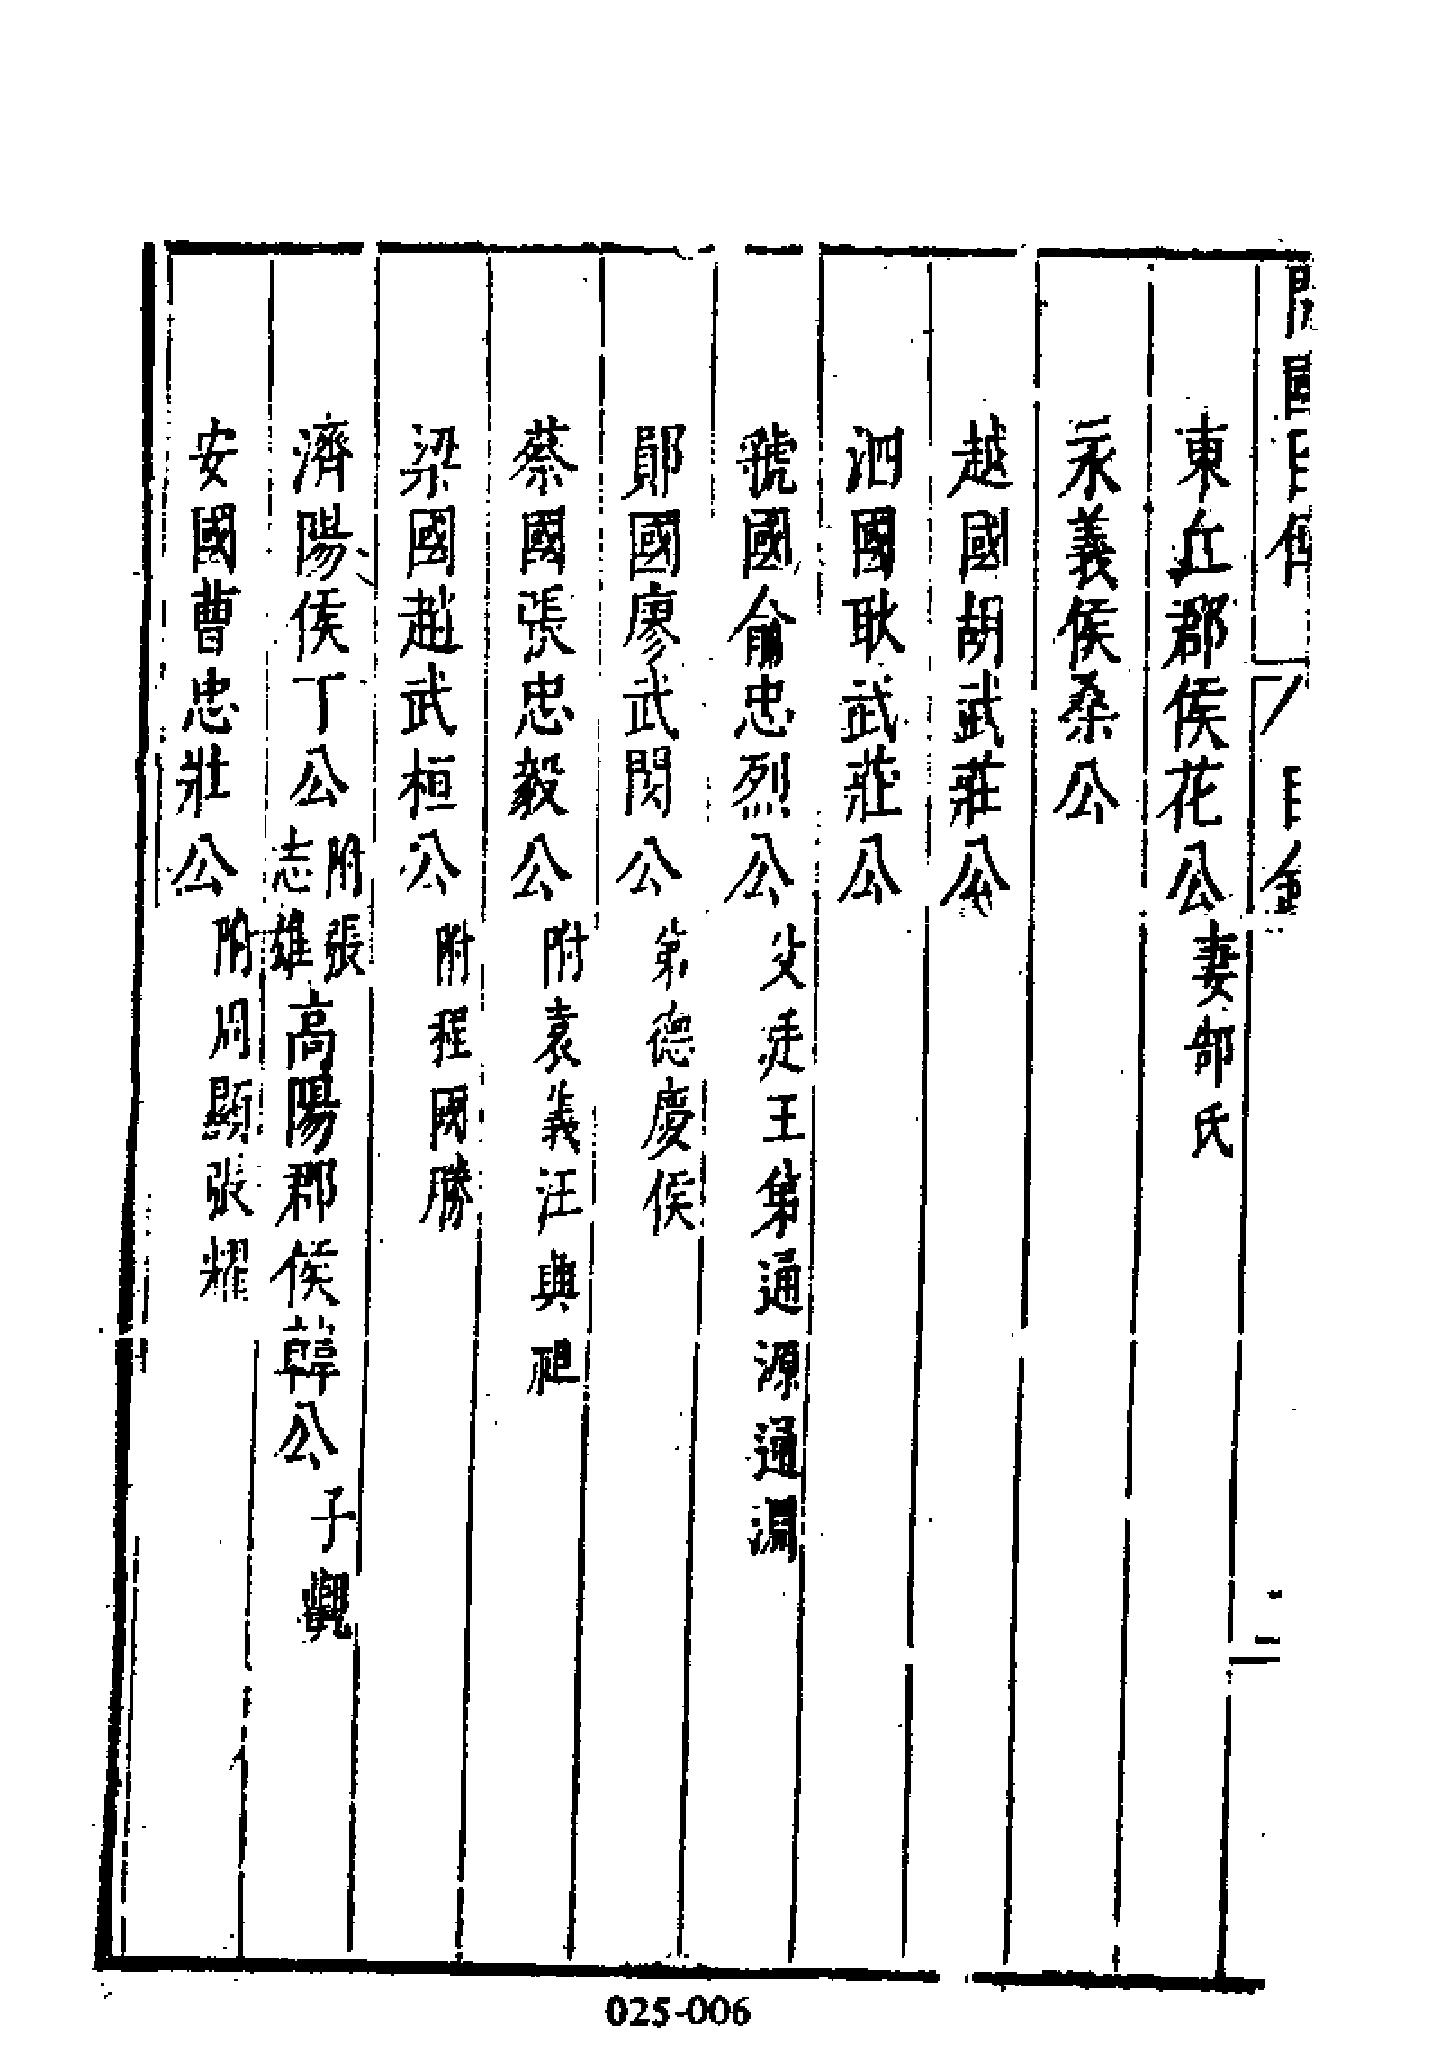 東丘郡侯花公 妻郜氏
永義侯桑公
越國胡武莊公
泗國耿武莊公
虢國俞忠烈公 父廷玉弟通源通淵
鄖國廖武閔公 弟德慶侯
蔡國張忠毅公 附袁義汪興祖
梁國趙武桓公 附程國勝
濟陽侯丁公 附張志雄 高陽郡侯韓公 子觀
安國曹忠壯公 附周顯張耀
二
025-006